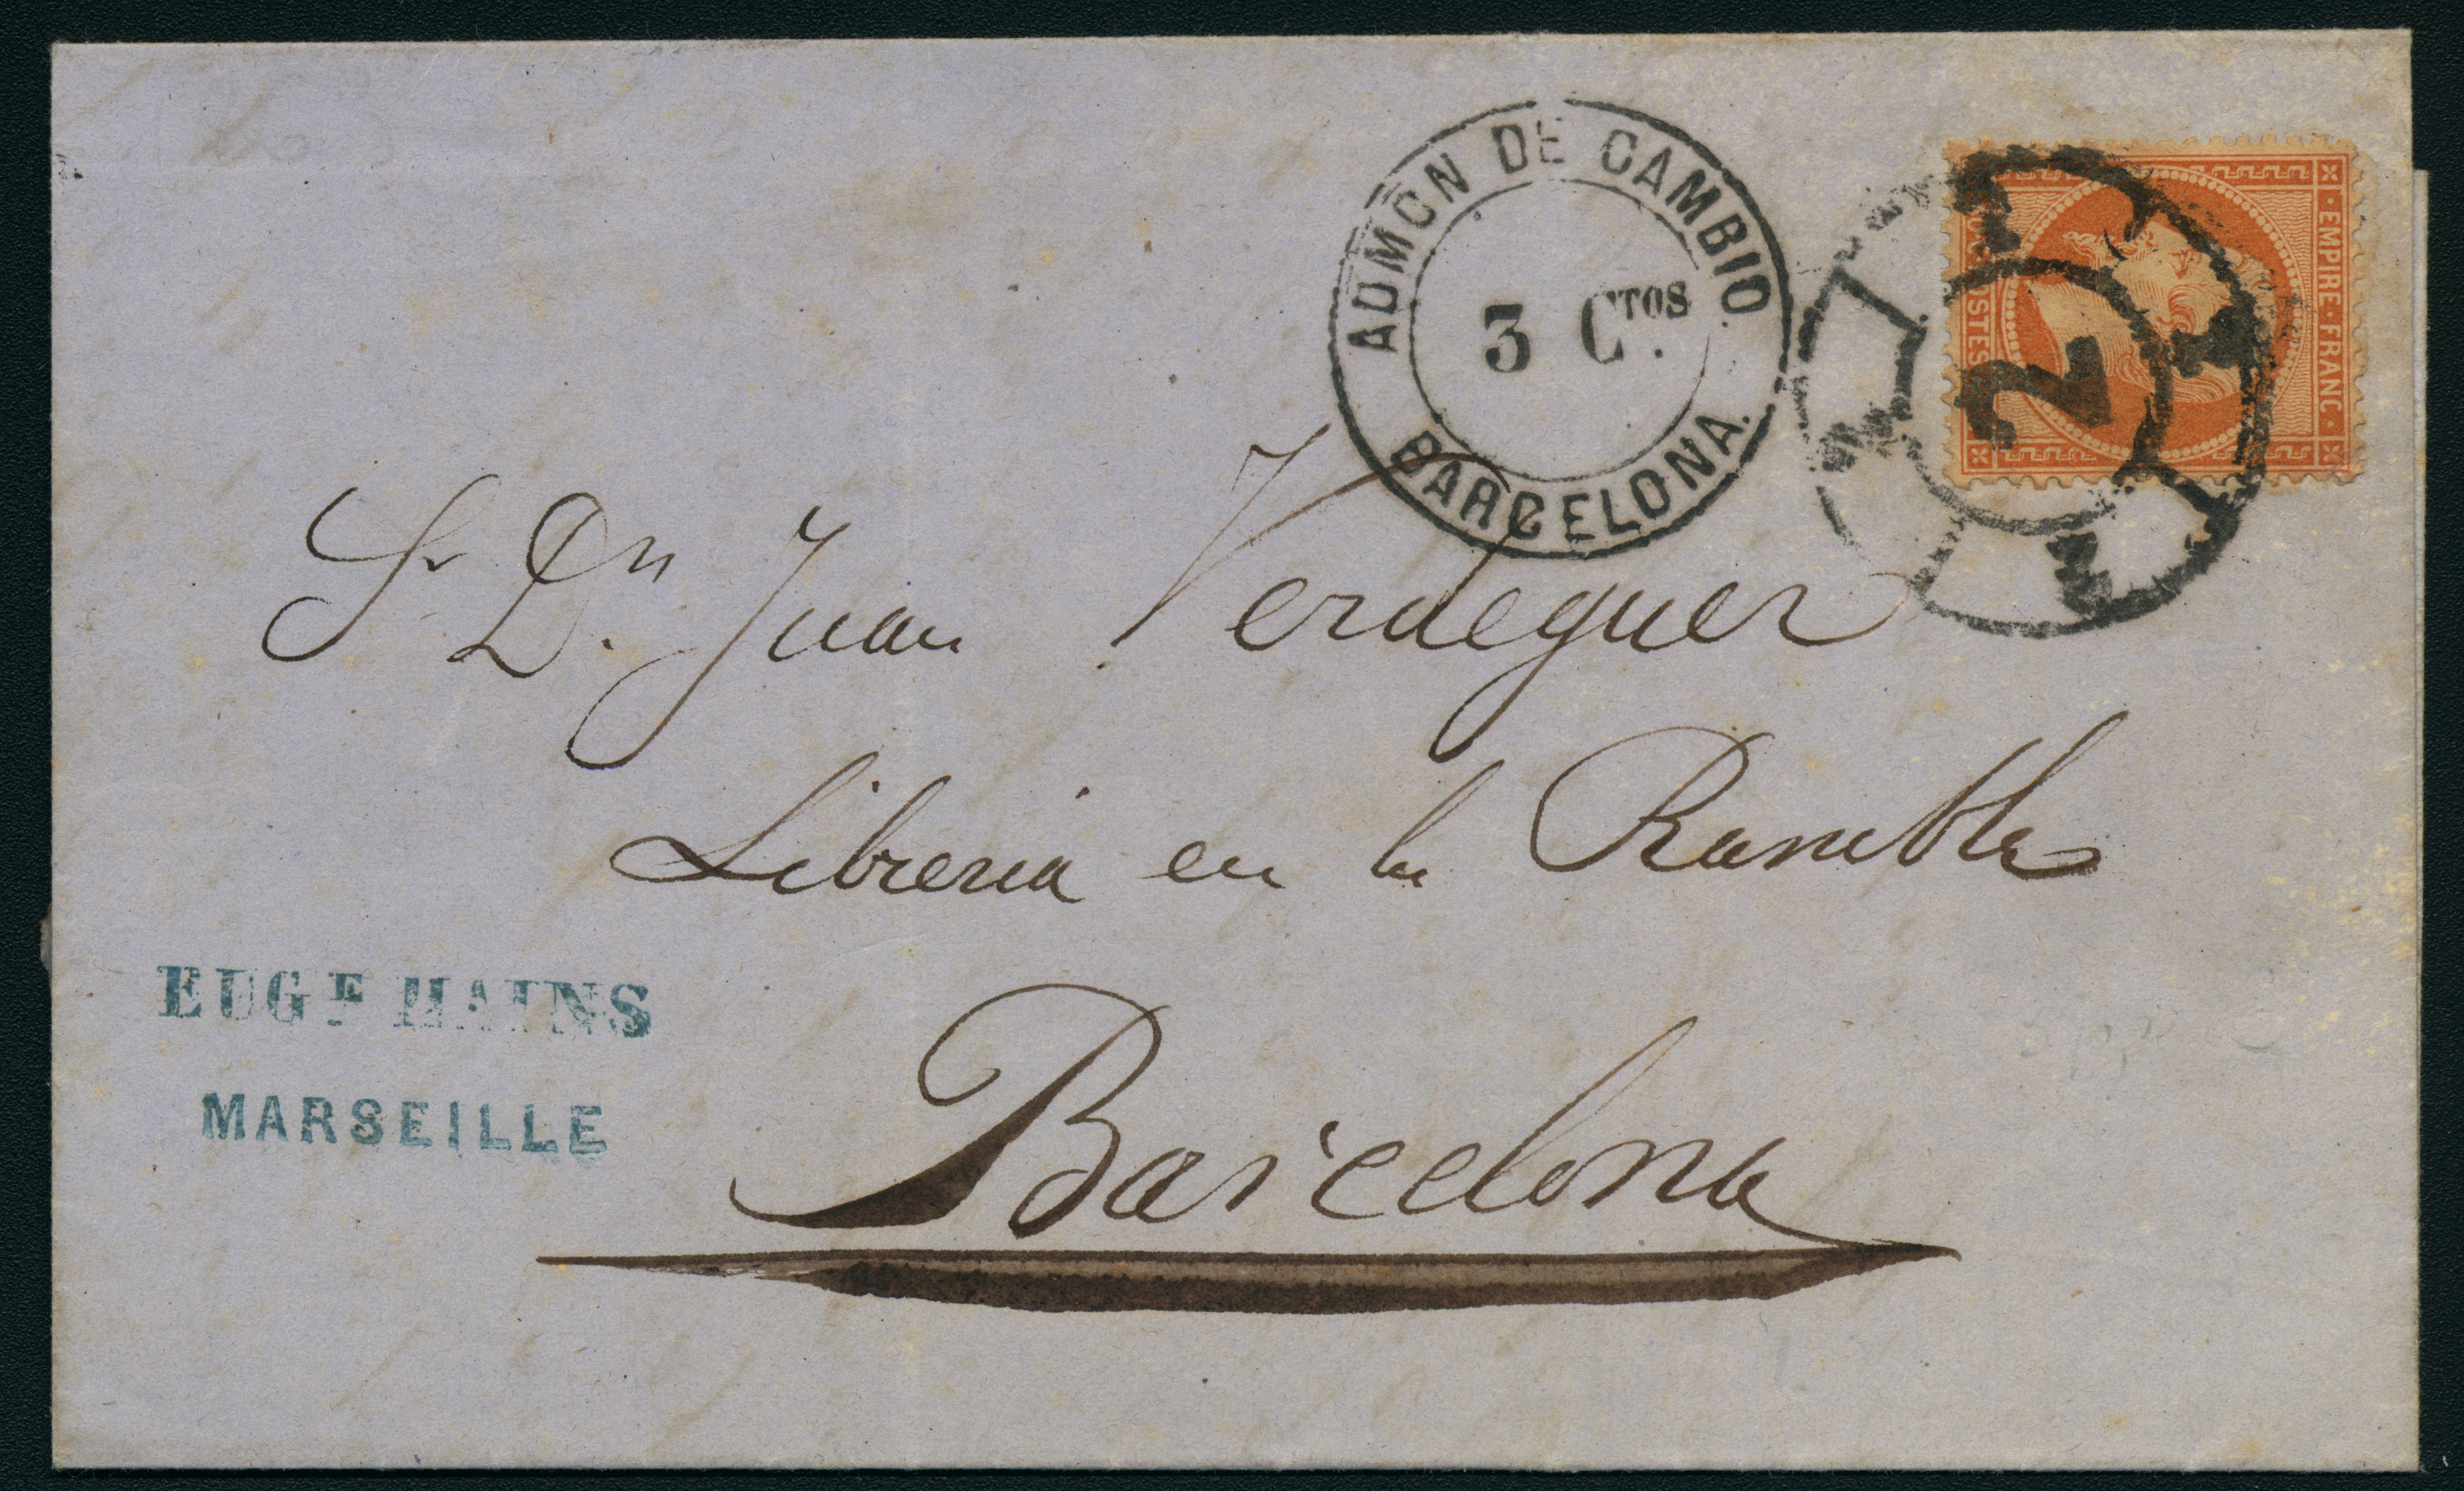 ADMON DE CAMBIO
3 Ctos.
BARCELONA.
EMPIRE·FRANC·
2
Sr Dn. Juan Verdeguer
Libreria en la Rambla
EUGE HAINS
MARSEILLE
Barcelona